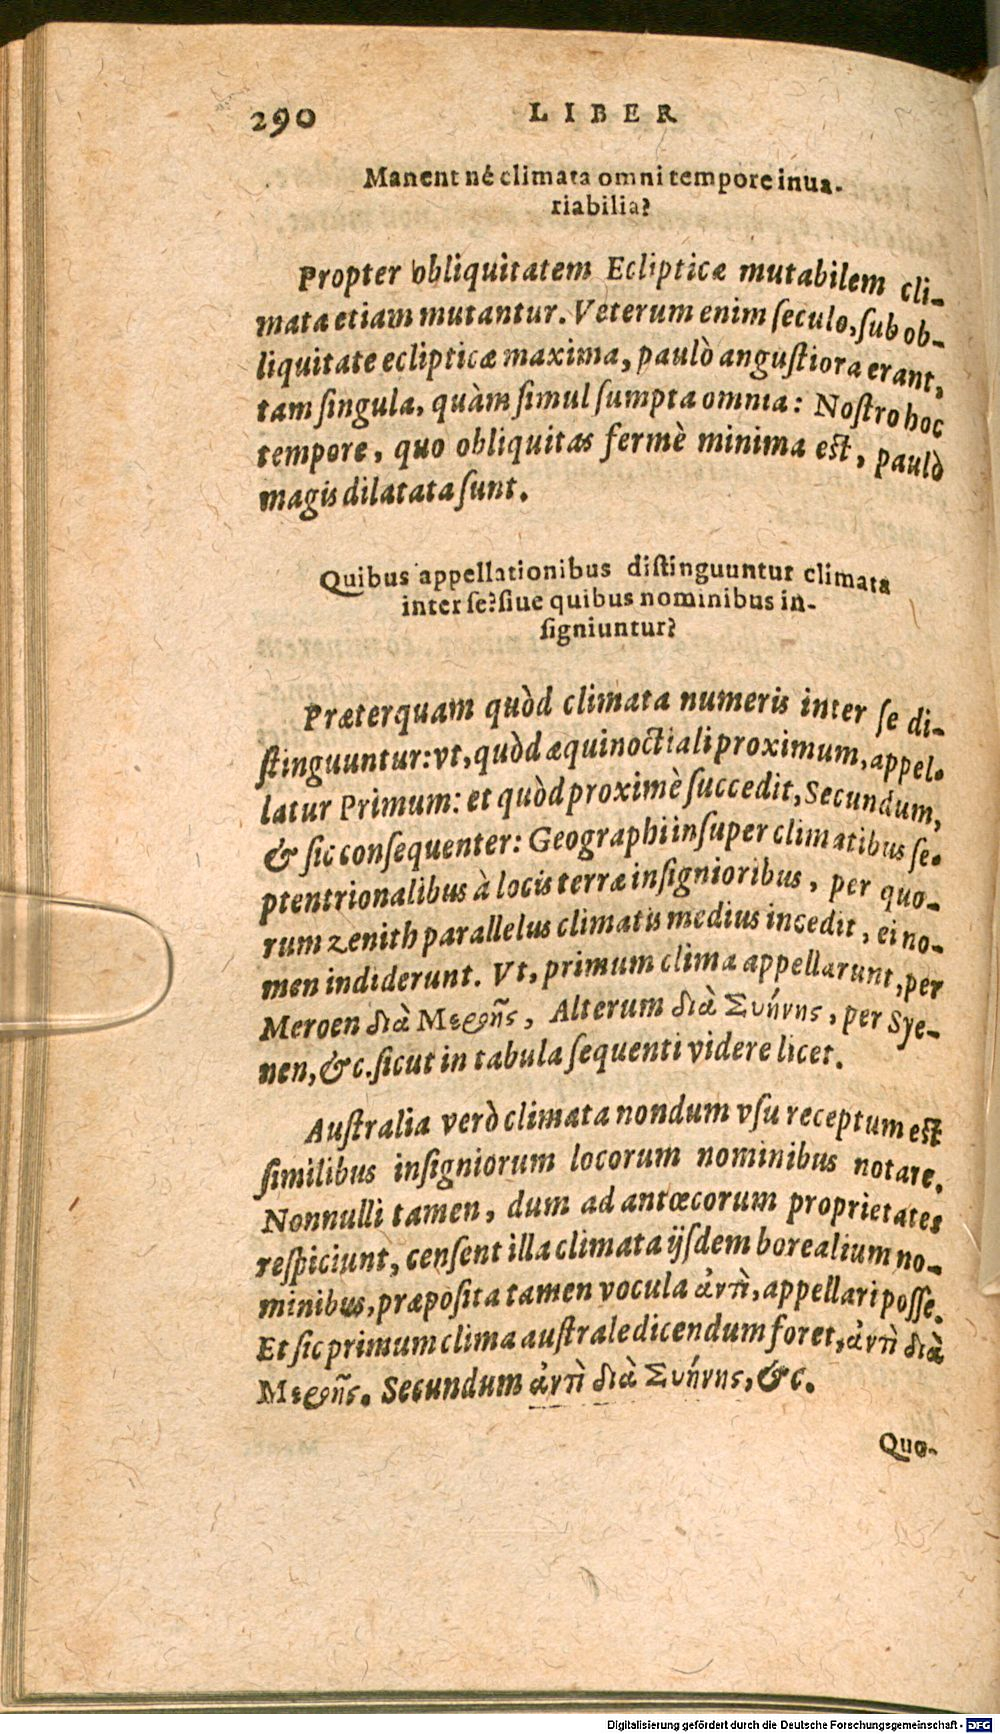 290 LIBER
Manent né climata omni tempore inua-
riabilia?
Propter obliquitatem Eclipticæ mutabilem cli-
mata etiam mutantur. Veterum enim ſeculo, ſub ob-
liquitate eclipticæ maxima, paulò anguſtiora erant,
tam ſingula, quàm ſimul ſumpta omnia: Noſtro hoc
tempore, quo obliquitas fermè minima eſt, paulò
magis dilatata ſunt.
Quibus appellationibus diſtinguuntur climata
inter ſe? ſiue quibus nominibus in-
ſigniuntur?
Præterquam quòd climata numeris inter ſe di-
ſtinguuntur: vt, quòd æquinoctiali proximum, appel-
latur Primum: et quòd proximè ſuccedit, Secundum,
& ſic conſequenter: Geographi inſuper climatibus ſe-
ptentrionalibus à locis terræ inſignioribus, per quo-
rum zenith parallelus climatis medius incedit, ei no-
men indiderunt. Vt, primum clima appellarunt, per
Meroen διὰ Μερόης, Alterum διὰ Συήνης, per Sye-
nen, &c. ſicut in tabula ſequenti videre licet.
Auſtralia verò climata nondum vſu receptum eſt
ſimilibus inſigniorum locorum nominibus notare.
Nonnulli tamen, dum ad antœcorum proprietates
reſpiciunt, cenſent illa climata ijſdem borealium no-
minibus, præpoſita tamen vocula ἀντὶ, appellari poſſe.
Et ſic primum clima auſtrale dicendum foret, ἀντὶ διὰ
Μερόης. Secundum ἀντὶ διὰ Συήνης, &c.
Quo-
Digitalisierung gefördert durch die Deutsche Forschungsgemeinschaft - DFG